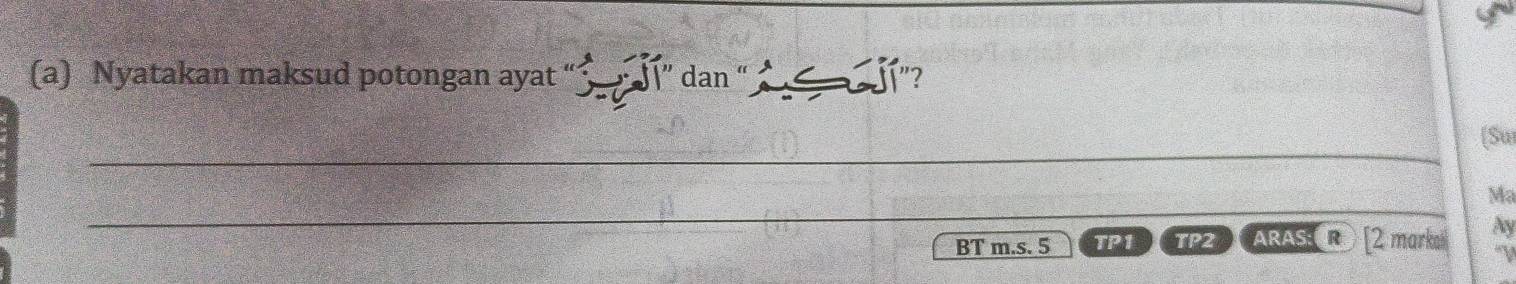 (a) Nyatakan maksud potongan ayat “ٱلْعَزِيزُ” dan “ٱلْحَكِيمُ”?
(i)
(ii)
BT m.s. 5 TP1 TP2 ARAS: R [2 markah
(Su
Ma
Ay
"W